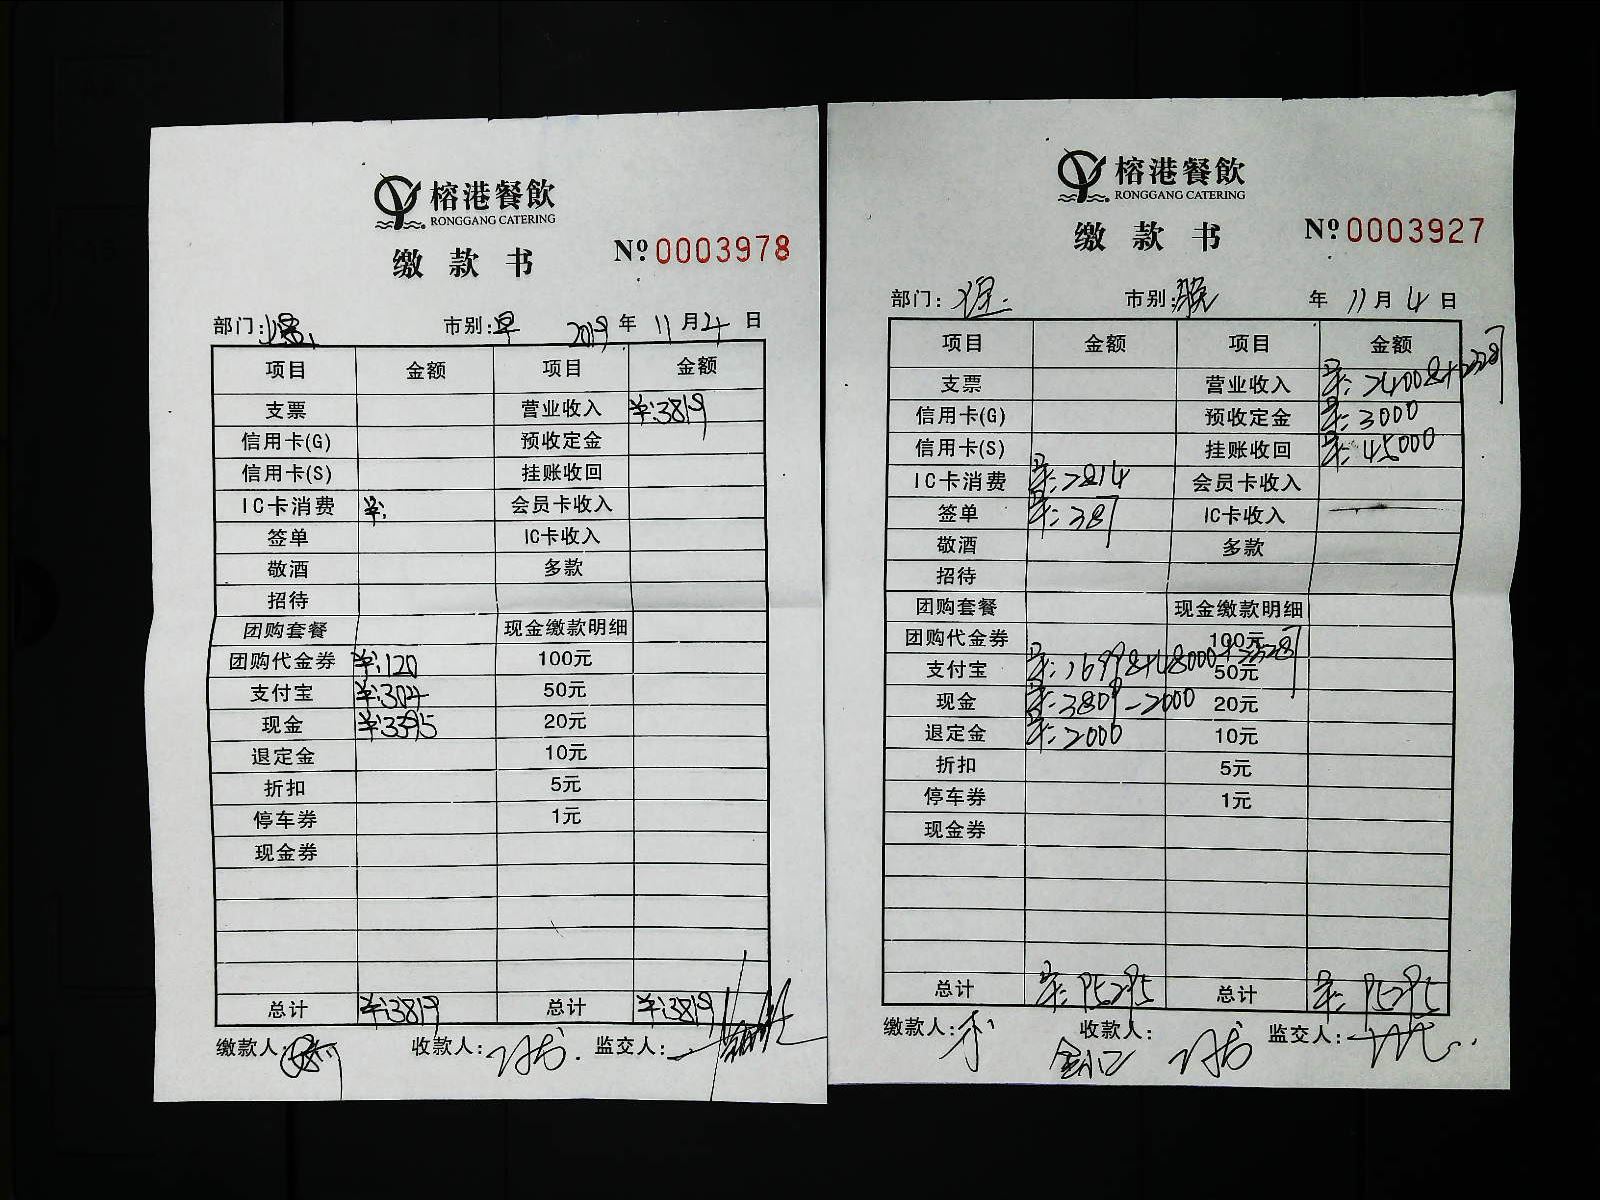 榕港餐飲
RONGGANG CATERING
缴款书
№ 0003978
部门: 市别:早 2019年11月4日
项目 金额 项目 金额
支票 营业收入 ¥:3819
信用卡(G) 预收定金
信用卡(S) 挂账收回
IC卡消费 ¥: 会员卡收入
签单 IC卡收入
敬酒 多款
招待
团购套餐 现金缴款明细
团购代金券 ¥:120 100元
支付宝 ¥:304 50元
现金 ¥:3395 20元
退定金 10元
折扣 5元
停车券 1元
现金券
总计 ¥:3819 总计 ¥:3819
缴款人: 收款人: 监交人:
榕港餐飲
RONGGANG CATERING
缴款书
№ 0003927
部门: 市别:晚 年11月4日
项目 金额 项目 金额
支票 营业收入
信用卡(G) 预收定金 ¥:3000
信用卡(S) 挂账收回 ¥:45000
IC卡消费 ¥:2814 会员卡收入
签单 ¥:387 IC卡收入
敬酒 多款
招待
团购套餐 现金缴款明细
团购代金券 100元
支付宝 50元
现金 ¥:3809-2000 20元
退定金 ¥:2000 10元
折扣 5元
停车券 1元
现金券
总计 ¥:95295 总计 ¥:95295
缴款人: 收款人: 监交人: